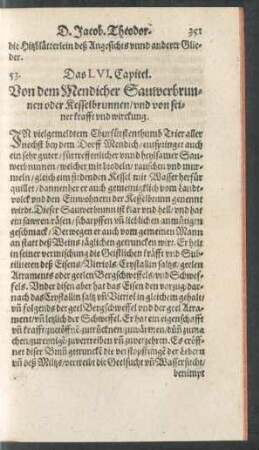 D. Jacob. Theodor. 351
die Hitzblätterlein deß Angesichts vnnd anderer Glie-
der.
53. Das LVI. Capitel.
Von dem Mendicher Saurwerbrun-
nen oder Kesselbrunnen / vnd von sei-
ner krafft vnd wirckung.
IN vielgemeldtem Churfürstenthumb Trier aller
nechst bey dem Dorff Mendich / entspringt auch
ein sehr guter / fürtreffenlicher vnnd heylsamer Saur-
werbrunnen / welcher mit brodeln / rauschen vnd mur-
meln / gleich ein siedenden Kessel mit Wasser herfür
quillet / dannenher er auch gemeiniglich vom Landt-
volck vnd den Einwohnern der Kesselbrunn genennt
wirdt. Dieser Saurbrunn ist klar vnd hell / vnd hat
ein sawren räsen / scharpffen vñ lieblichen anmütigen
geschmack / Derwegen er auch vom gemeinen Mann
an statt deß Weins täglichen getruncken wirt. Er helt
in seiner vermischung die Geistlichen kräfft vnd Sub-
tiliteten deß Eisens / Vitriols Crystallin saltzs / geelen
Atraments oder geelen Bergschweffels / vnd Schwef-
fels. Vnder disen aber hat das Eisen den vorzug / dar-
nach das Crystallin saltz vñ Vitriol in gleichem gehalt /
vñ folgends der geel Bergschweffel vnd der geel Atra-
ment / vñ letzlich der Schweffel. Er hat ein eigenschafft
vñ krafft / zueröffnẽ zutrücknen zuwärmen / dũn zuma-
chen / zureinigẽ zuvertreiben vñ zuverzehren. Es eröff-
net diser Brũn getrunckẽ die verstopffungẽ der Lebern
vñ deß Miltzs / vertreibt die Geelsucht vñ Wassersucht /
benimpt